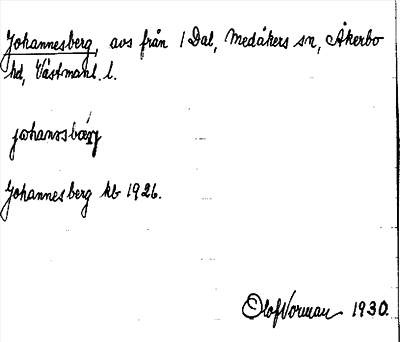 Johannesberg, avs från 1 Dal, Medåkers sn, Åkerbo
hd, Västmanl. l.
johanәsbærj
Johannesberg kb 1926.
Olof Norman 1930.